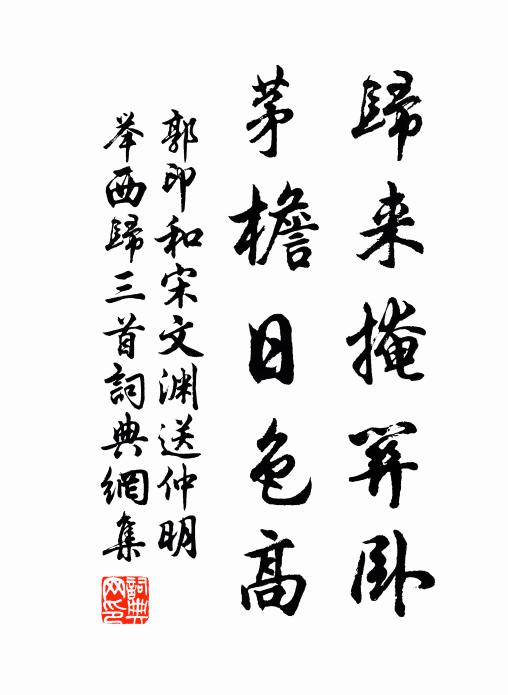 歸来掩關卧
茅檐日色高
郭印和宋文渊送仲明
举西歸三首詞典網集
詞典网印